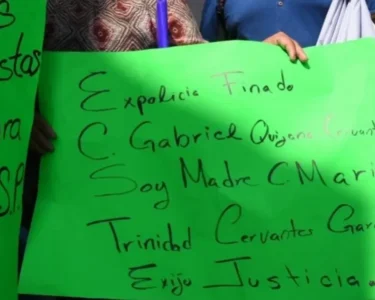 stas
Expolicia Finado
C. Gabriel Quijano Cervant
Soy Madre C. Mari
Trinidad Cervantes Gar
Exijo Justicia.